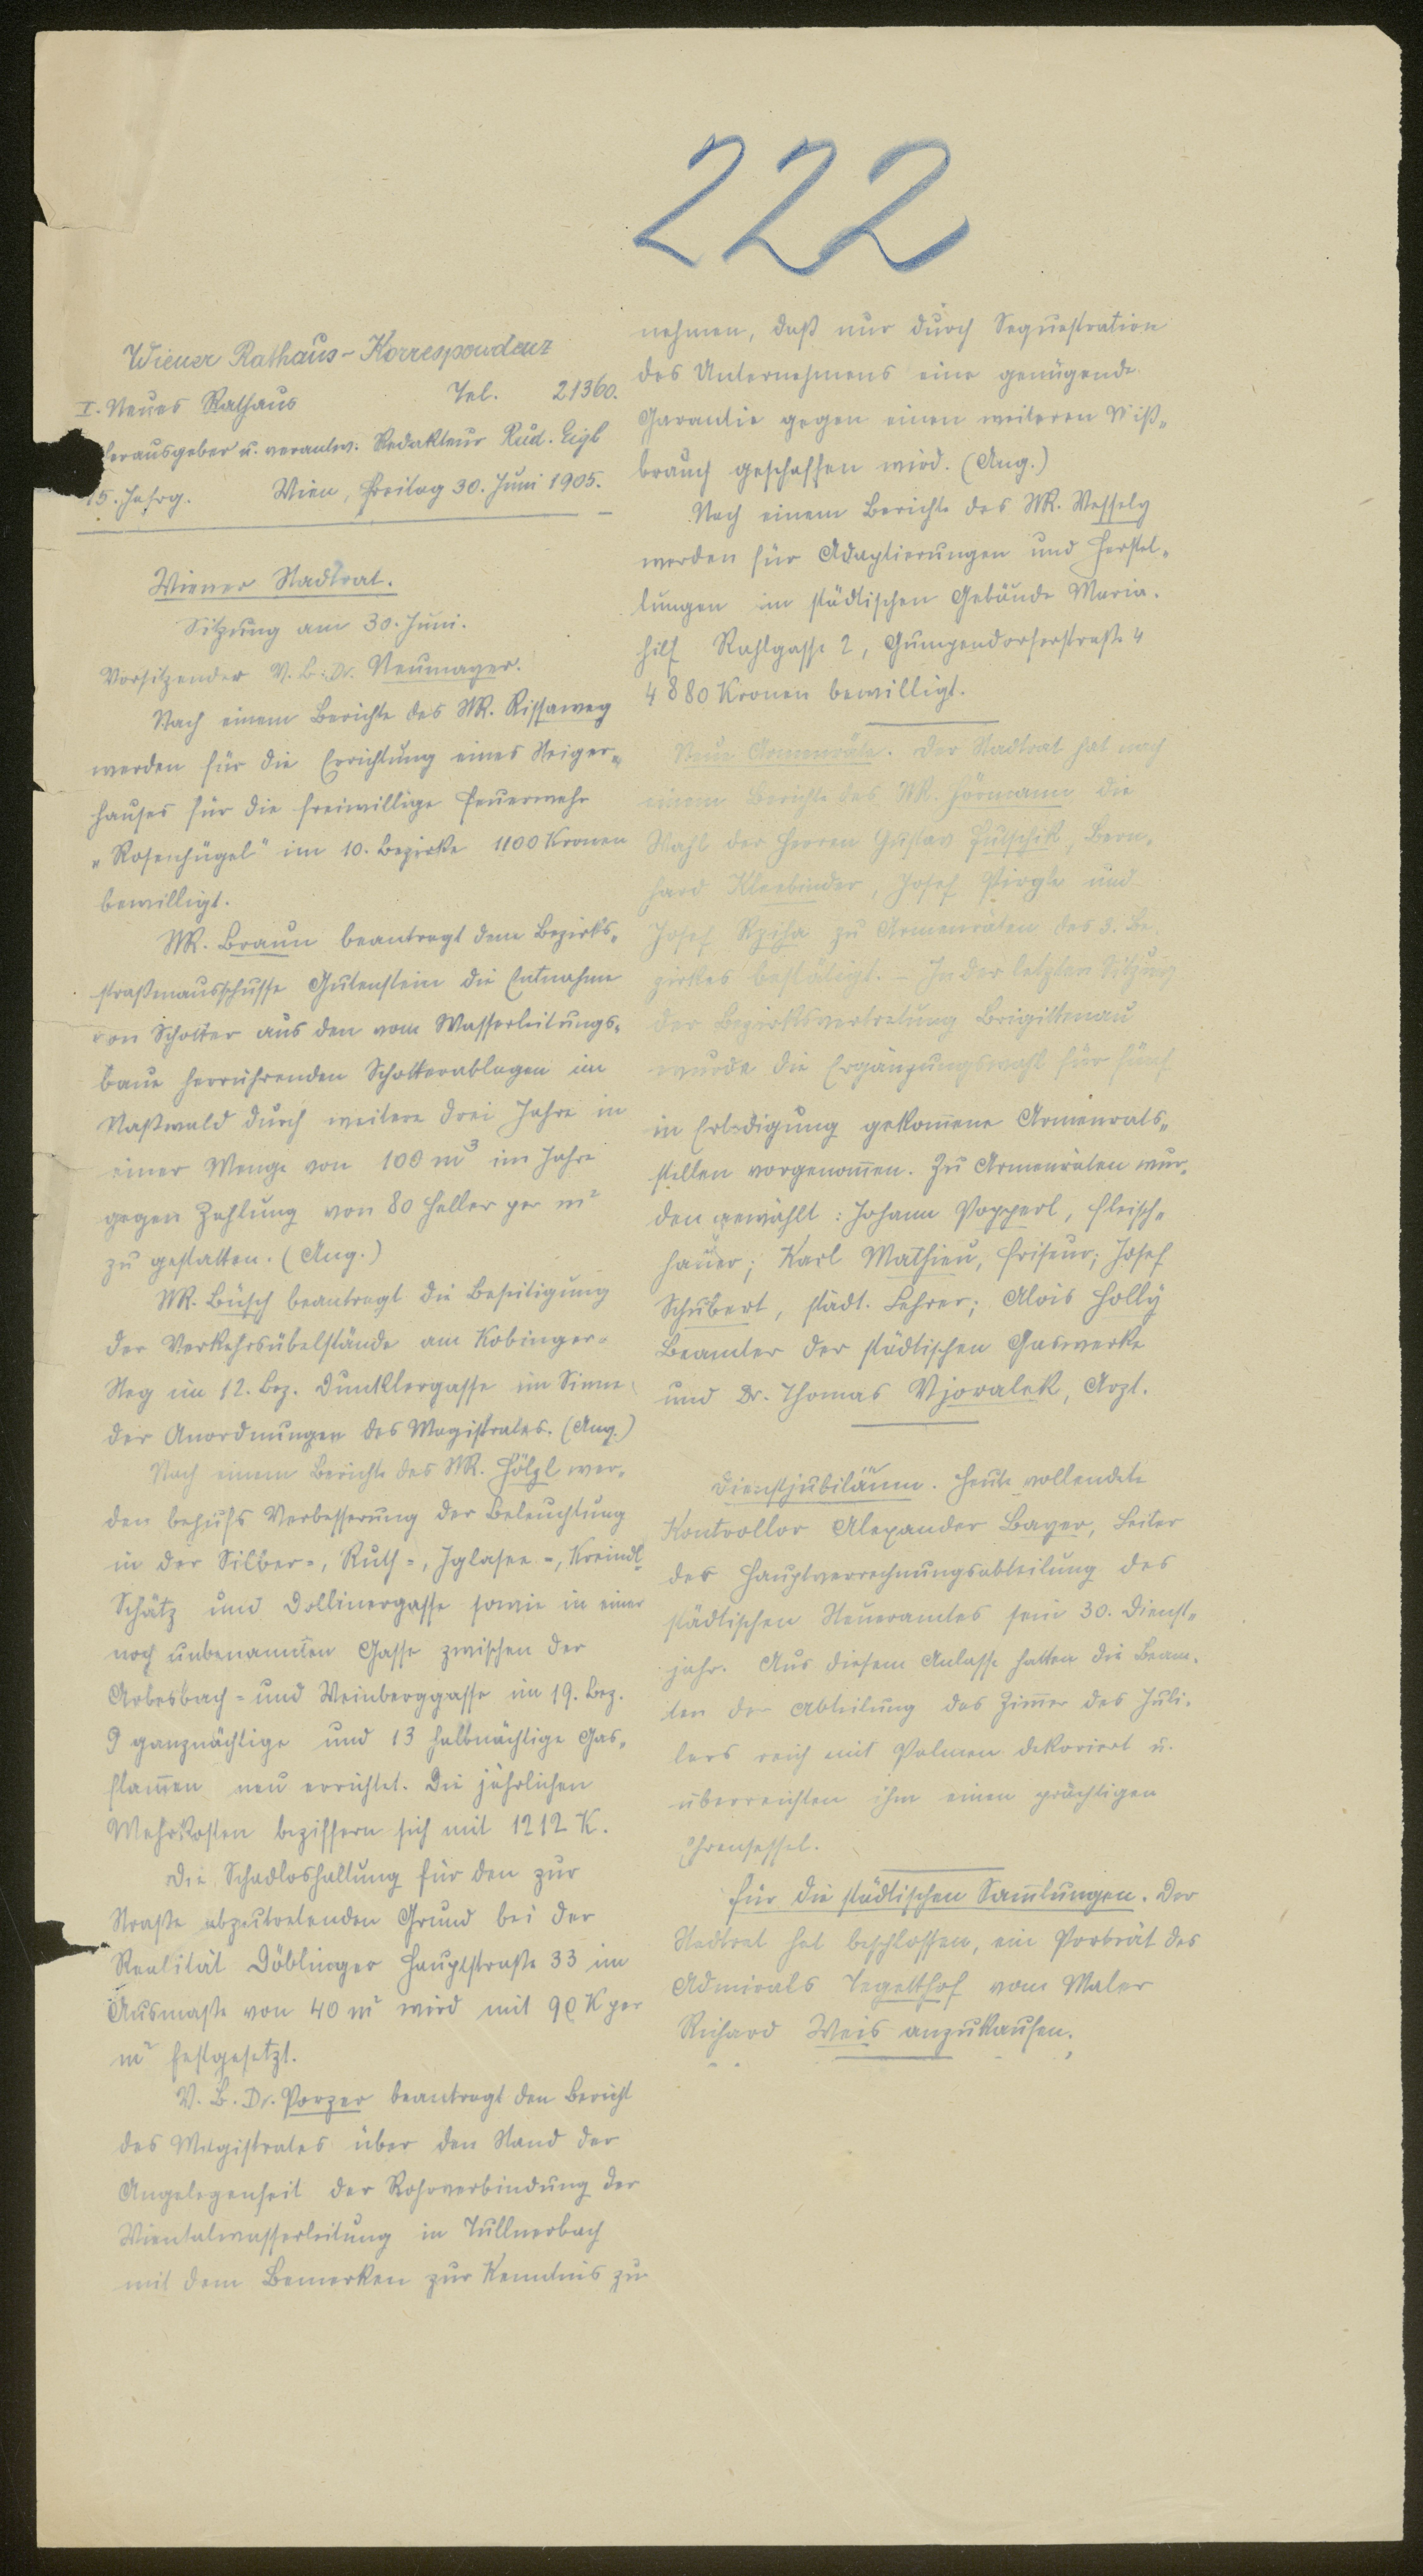 222
Wiener Rathaus-Korrespondenz
I. Neues Rathaus Tel. 21360.
Herausgeber u. verantw. Redakteur Rud. Eigl
15. Jahrg. Wien, Freitag 30. Juni 1905.
Wiener Stadtrat.
Sitzung am 30. Juni.
Vorsitzender V. B. Dr. Neumayer.
Nach einem Berichte des StR. Rissaweg
werden für die Errichtung eines Steiger-
hauses für die freiwillige Feuerwehr
"Rosenhügel" im 10. Bezirke 1100 Kronen
bewilligt.
StR. Braun beantragt dem Bezirks-
straßenausschusse Gutenstein die Entnahme
von Schotter aus den vom Wasserleitungs-
baue herrührenden Schotterablagen im
Naßwald durch weitere drei Jahre in
einer Menge von 100 m³ im Jahre
gegen Zahlung von 80 Heller per m²
zu gestatten. (Ang.)
StR. Büsch beantragt die Beseitigung
der Verkehrsübelstände am Kobinger-
Steg im 12. Bez. Dunklergasse im Sinne
der Anordnungen des Magistrates. (Ang.)
Nach einem Berichte des StR. Hölzl wer-
den behufs Verbesserung der Beleuchtung
in der Silber-, Ruth-, Iglasee-, Kreindl-
Schätz und Dollinergasse sowie in einer
noch unbenannten Gasse zwischen der
Arbesbach- und Weinberggasse im 19. Bez.
9 ganznächtige und 13 halbnächtige Gas-
flam̅en neu errichtet. Die jährlichen
Mehrkosten beziffern sich mit 1212 K.
Die Schadloshaltung für den zur
Straße abzutretenden Grund bei der
Realität Döblinger Hauptstraße 33 im
Ausmaße von 40 m² wird mit 90 K per
m² festgesetzt.
V. B. Dr. Porzer beantragt den Bericht
des Magistrates über den Stand der
Angelegenheit der Rohrverbindung der
Wientalwasserleitung in Tullnerbach
mit dem Bemerken zur Kenntnis zu
nehmen, daß nur durch Sequestration
des Unternehmens eine genügende
Garantie gegen einen weiteren Miß-
brauch geschaffen wird. (Ang.)
Nach einem Berichte des StR. Wessely
werden für Adaptierungen und Herstel-
lungen im städtischen Gebäude Maria-
hilf Rahlgasse 2, Gumpendorferstraße 4
4880 Kronen bewilligt.
Neue Armenräte. Der Stadtrat hat nach
einem Berichte des StR. Hörmann die
Wahl der Herren Gustav Hutschik, Bern-
hard Kleebinder, Josef Pirgle und
Josef Rziha zu Armenräten des 3. Be-
zirkes bestätigt. – In der letzten Sitzung
der Bezirksvertretung Brigittenau
wurde die Ergänzungswahl für fünf
in Erledigung gekom̅ene Armenrats-
stellen vorgenom̅en. Zu Armenräten wur-
den gewählt: Johann Popperl, Fleisch-
hauer; Karl Mathieu, Friseur; Josef
Schubert, städt. Lehrer; Alois Holly
Beamter der städtischen Gaswerke
und Dr. Thomas Vjoralek, Arzt.
Dienstjubiläum. Heute vollendete
Kontrollor Alexander Bayer, Leiter
der Hauptverrechnungsabteilung des
städtischen Steueramtes sein 30. Dienst-
jahr. Aus diesem Anlasse hatten die Beam-
ten der Abteilung das Zim̅er des Jubi-
lars reich mit Palmen dekoriert u.
überreichten ihm einen prächtigen
Ehrensessel.
Für die städtischen Sam̅lungen. Der
Stadtrat hat beschlossen, ein Porträt des
Admirals Tegetthof vom Maler
Richard Weis anzukaufen.